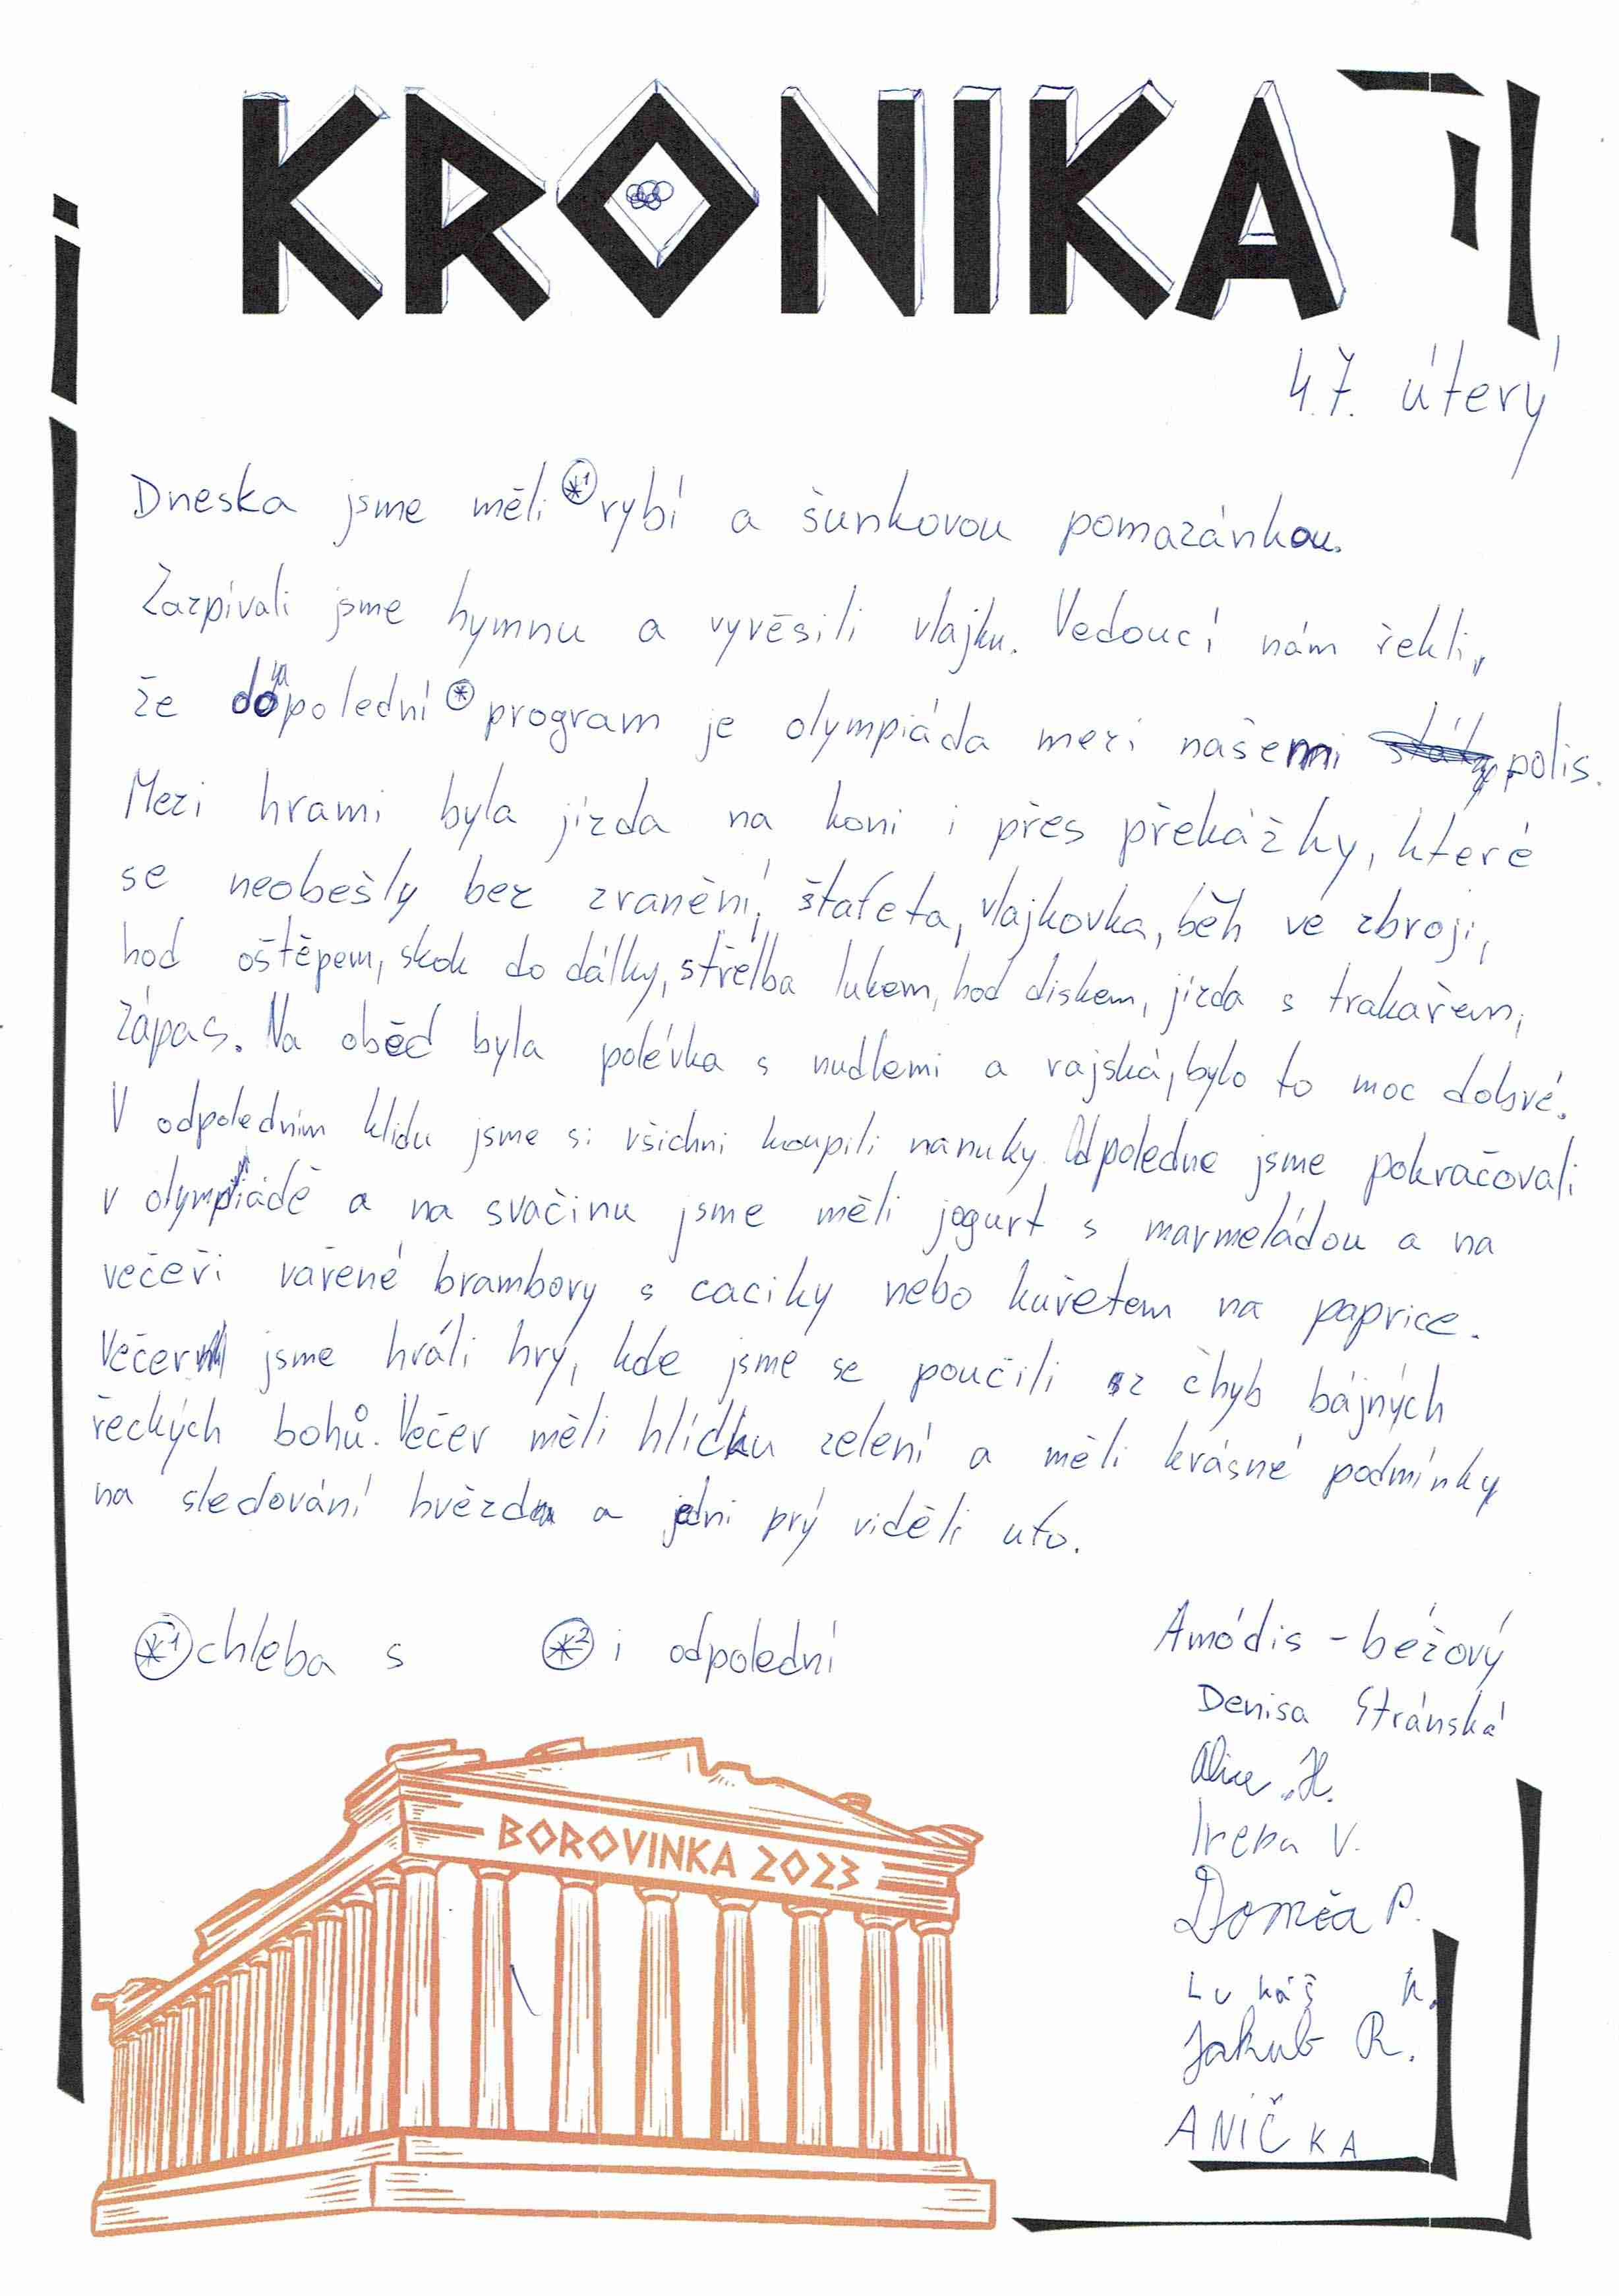 KRONIKA
4.7. úterý
Dneska jsme měli *1 rybí a šunkovou pomazánkou.
Zazpívali jsme hymnu a vyvěsili vlajku. Vedoucí nám řekli,
že dopolední * program je olympiáda mezi našemi polis.
Mezi hrami byla jízda na koni i přes překážky, které
se neobešly bez zranění, štafeta, vlajkovka, běh ve zbroji,
hod oštěpem, skok do dálky, střelba lukem, hod diskem, jízda s trakařem,
zápas. Na oběd byla polévka s nudlemi a rajská, bylo to moc dobré.
V odpoledním klidu jsme si všichni koupili nanuky. Odpoledne jsme pokračovali
v olympiádě a na svačinu jsme měli jogurt s marmeládou a na
večeři vařené brambory s caciky nebo kuřetem na paprice.
Večer jsme hráli hry, kde jsme se poučili z chyb bájných
řeckých bohů. Večer měli hlídku zelení a měli krásné podmínky
na sledování hvězd a jedni prý viděli ufo.
*1 chleba s *2 i odpolední
Amódis - béžový
Denisa Stránská
Alice H.
Irena V.
Domča P.
Lukáš K.
Jakub R.
ANIČKA
BOROVINKA 2023